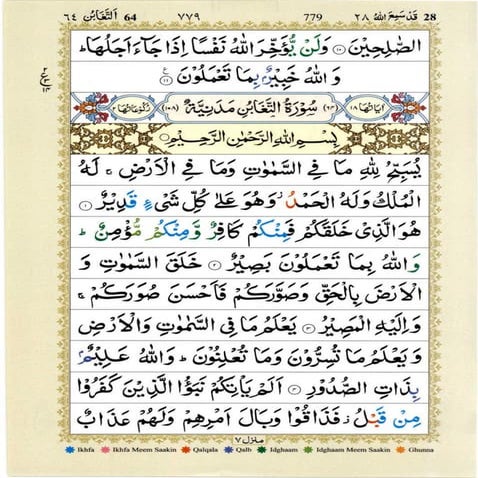 ٦٤ اَلتَّغَابُن 64 ٧٧٩ 779 قَدْ سَمِعَ اللهُ ٢٨ 28
الصّٰلِحِيْنَ ١٠ وَلَنْ يُّؤَخِّرَ اللّٰهُ نَفْسًا اِذَا جَآءَ اَجَلُهَا ؕ
وَ اللّٰهُ خَبِيْرٌۢ بِمَا تَعْمَلُوْنَ ١١
اٰيَاتُهَا ١٨ (٦٤) سُوْرَةُ التَّغَابُنِ مَدَنِيَّةٌ (١٠٨) رُكُوْعَاتُهَا ٢
بِسْمِ اللّٰهِ الرَّحْمٰنِ الرَّحِيْمِ
يُسَبِّحُ لِلّٰهِ مَا فِى السَّمٰوٰتِ وَمَا فِى الْاَرْضِ ۚ لَهُ
الْمُلْكُ وَلَهُ الْحَمْدُ ؗ وَهُوَ عَلٰى كُلِّ شَىْءٍ قَدِيْرٌ ١
هُوَ الَّذِىْ خَلَقَكُمْ فَمِنْكُمْ كَافِرٌ وَّمِنْكُمْ مُّؤْمِنٌ ؕ
وَ اللّٰهُ بِمَا تَعْمَلُوْنَ بَصِيْرٌ ٢ خَلَقَ السَّمٰوٰتِ وَ
الْاَرْضَ بِالْحَقِّ وَصَوَّرَكُمْ فَاَحْسَنَ صُوَرَكُمْ ۚ
وَ اِلَيْهِ الْمَصِيْرُ ٣ يَعْلَمُ مَا فِى السَّمٰوٰتِ وَالْاَرْضِ
وَ يَعْلَمُ مَا تُسِرُّوْنَ وَمَا تُعْلِنُوْنَ ؕ وَاللّٰهُ عَلِيْمٌۢ
بِذَاتِ الصُّدُوْرِ ٤ اَلَمْ يَاْتِكُمْ نَبَؤُا الَّذِيْنَ كَفَرُوْا
مِنْ قَبْلُ ؗ فَذَاقُوْا وَبَالَ اَمْرِهِمْ وَلَهُمْ عَذَابٌ
منزل ٧
Ikhfa Ikhfa Meem Saakin Qalqala Qalb Idghaam Idghaam Meem Saakin Ghunna